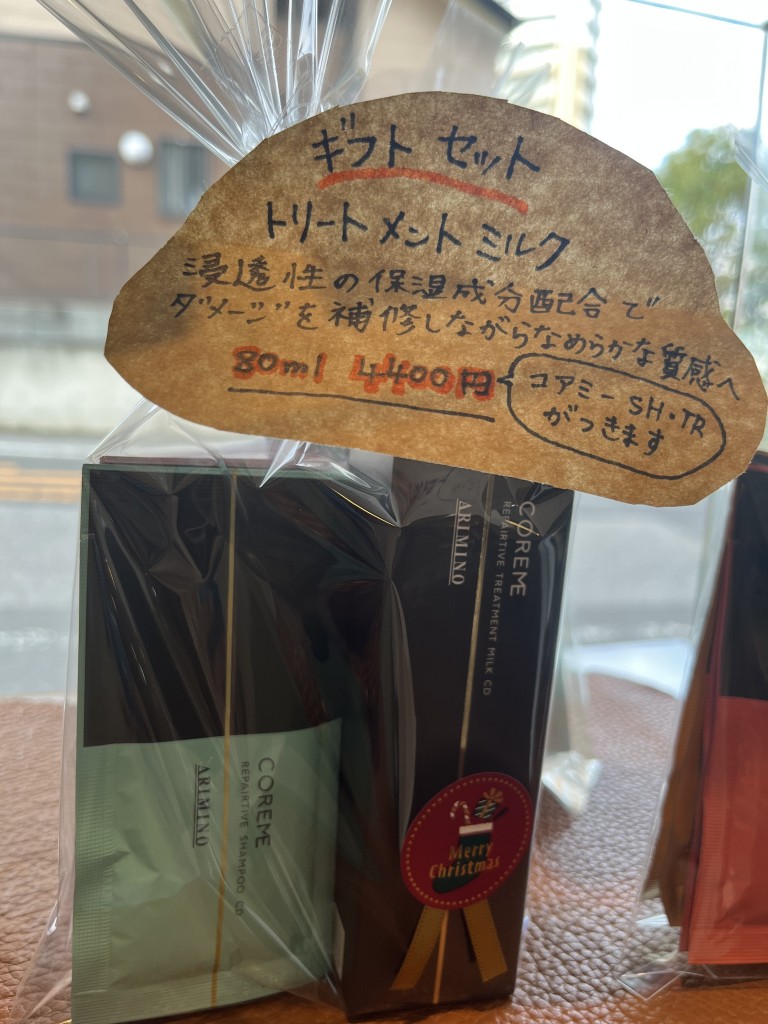 ギフト セット
トリートメント ミルク
浸透性の保湿成分配合で
ダメージを補修しながらなめらかな質感へ
80ml 4400円
コアミー SH・TR
がつきます
COREME
REPAIRTIVE TREATMENT MILK CD
ARIMINO
COREME
REPAIRTIVE SHAMPOO CD
ARIMINO
Merry
Christmas